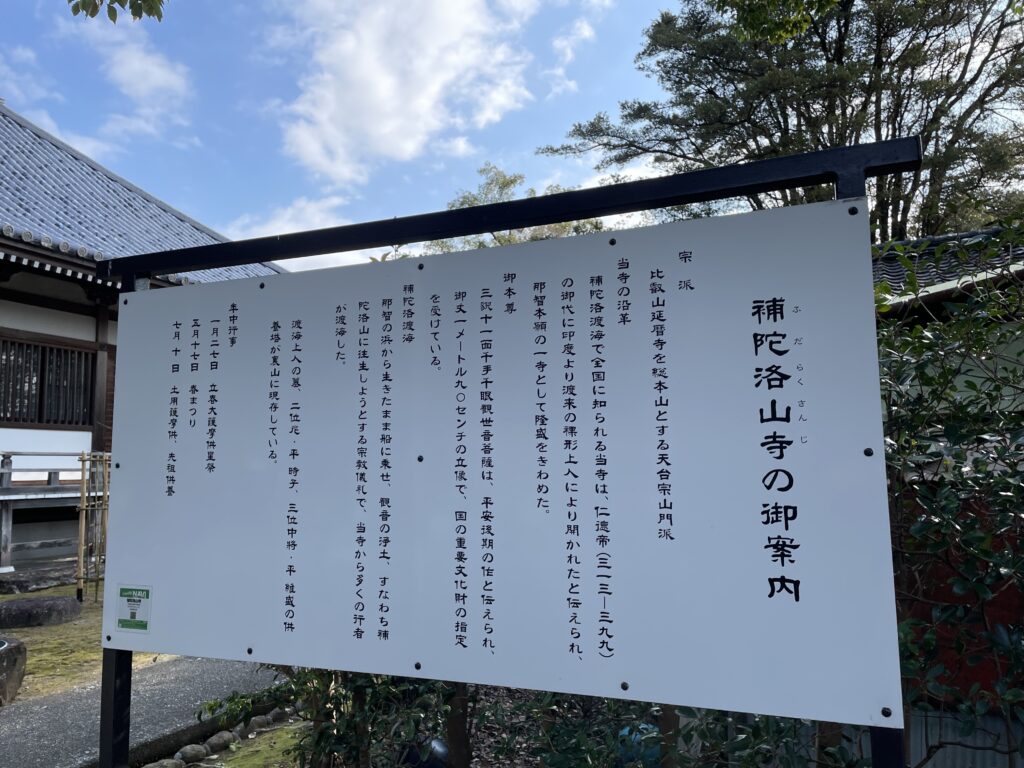 補陀洛山寺の御案内
ふだらくさんじ
宗派
比叡山延暦寺を総本山とする天台宗山門派
当寺の沿革
補陀洛渡海で全国に知られる当寺は、仁徳帝(三一三―三九九)
の御代に印度より渡来の裸形上人により開かれたと伝えられ、
那智本願の一寺として隆盛をきわめた。
御本尊
三貌十一面千手千眼観世音菩薩は、平安後期の作と伝えられ、
御丈一メートル九〇センチの立像で、国の重要文化財の指定
を受けている。
補陀洛渡海
那智の浜から生きたまま船に乗せ、観音の浄土、すなわち補
陀洛山に往生しようとする宗教儀礼で、当寺から多くの行者
が渡海した。
渡海上人の墓、二位尼・平時子、三位中将・平維盛の供
養塔が裏山に現存している。
年中行事
一月二七日 立春大護摩供星祭
五月十七日 春まつり
七月十日 土用護摩供、先祖供養
NAVI